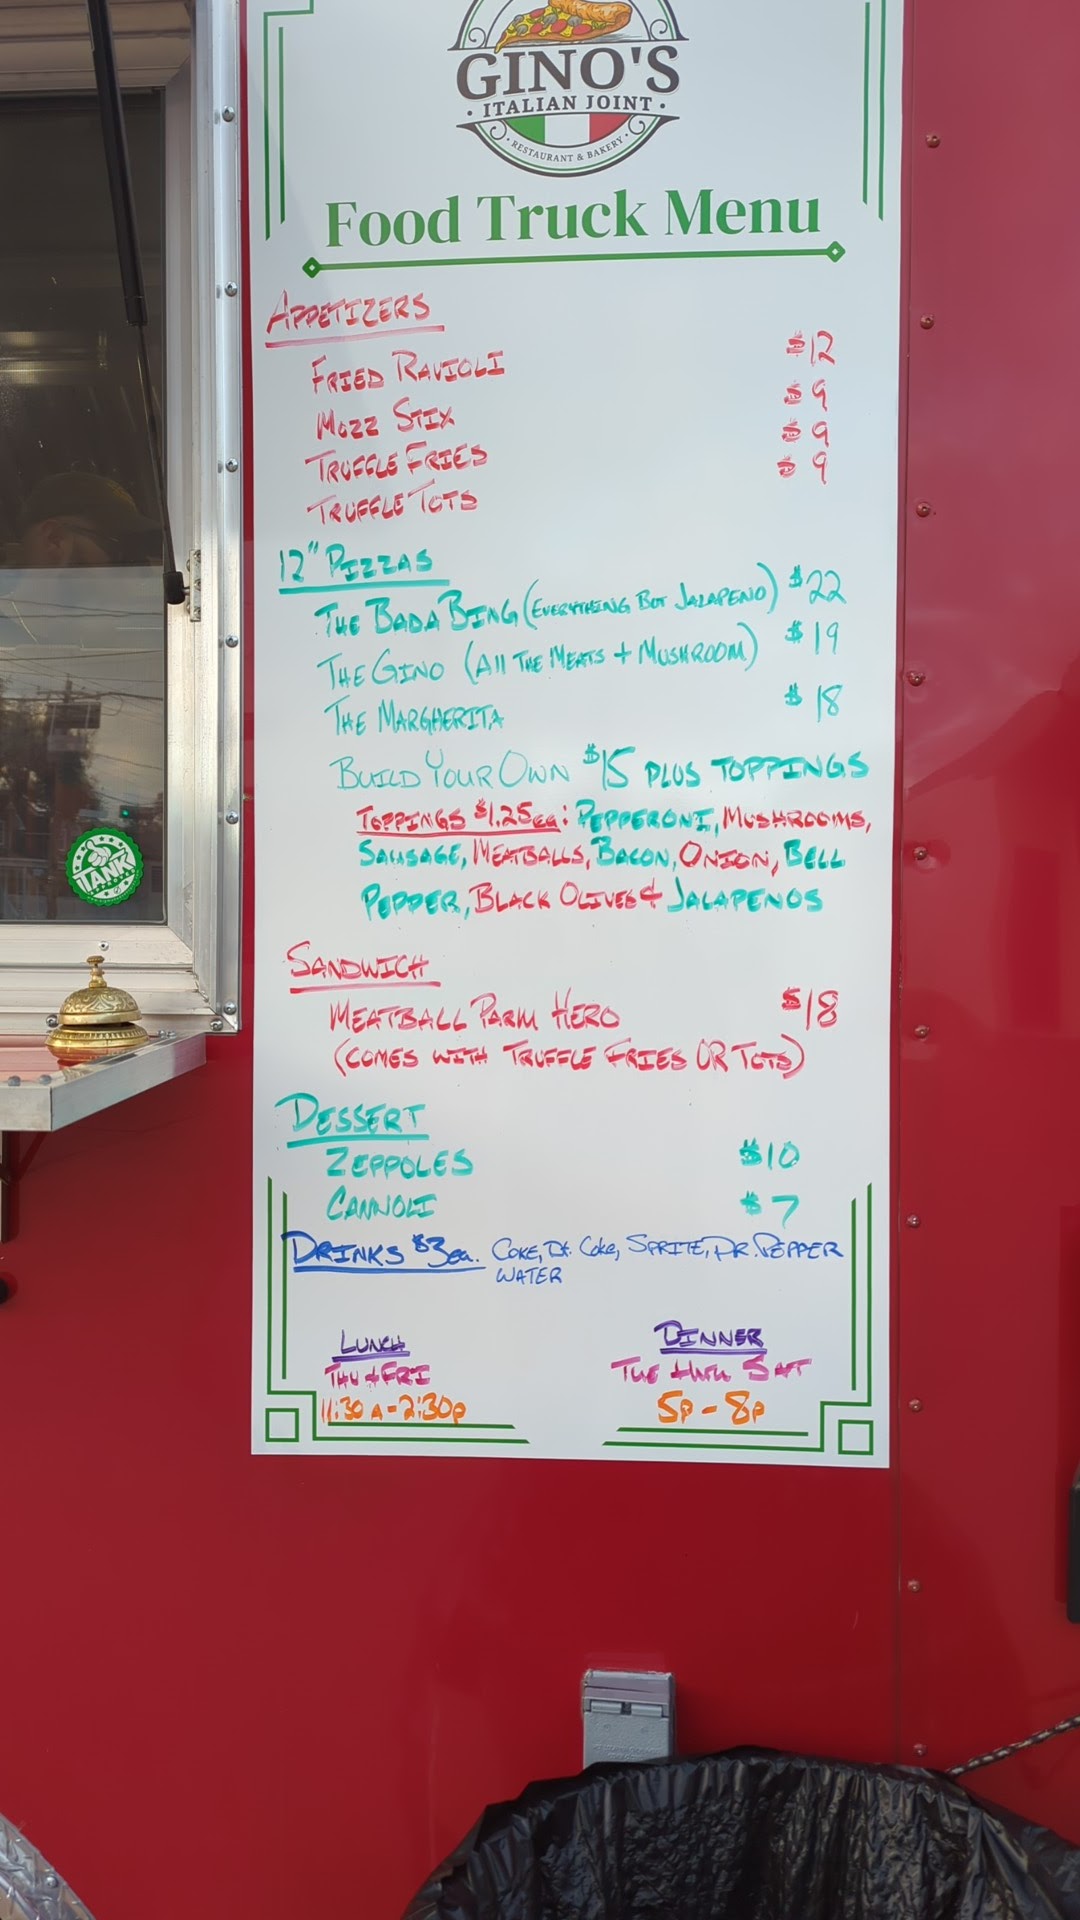 GINO'S
· ITALIAN JOINT ·
· RESTAURANT & BAKERY ·
Food Truck Menu
APPETIZERS
FRIED RAVIOLI $12
MOZZ STIX $9
TRUFFLE FRIES $9
TRUFFLE TOTS $9
12" PIZZAS
THE BADA BING (EVERYTHING BUT JALAPENO) $22
THE GINO (All THE MEATS + MUSHROOM) $19
THE MARGHERITA $18
BUILD YOUR OWN $15 PLUS TOPPINGS
TOPPINGS $1.25ea: PEPPERONI, MUSHROOMS,
SAUSAGE, MEATBALLS, BACON, ONION, BELL
PEPPER, BLACK OLIVES & JALAPENOS
SANDWICH
MEATBALL PARM HERO $18
(COMES WITH TRUFFLE FRIES OR TOTS)
DESSERT
ZEPPOLES $10
CANNOLI $7
DRINKS $3ea. COKE, Dt. Coke, SPRITE, DR. PEPPER
WATER
LUNCH
THU + FRI
11:30 A - 2:30p
DINNER
TUE thru SAT
5p - 8p
TANK